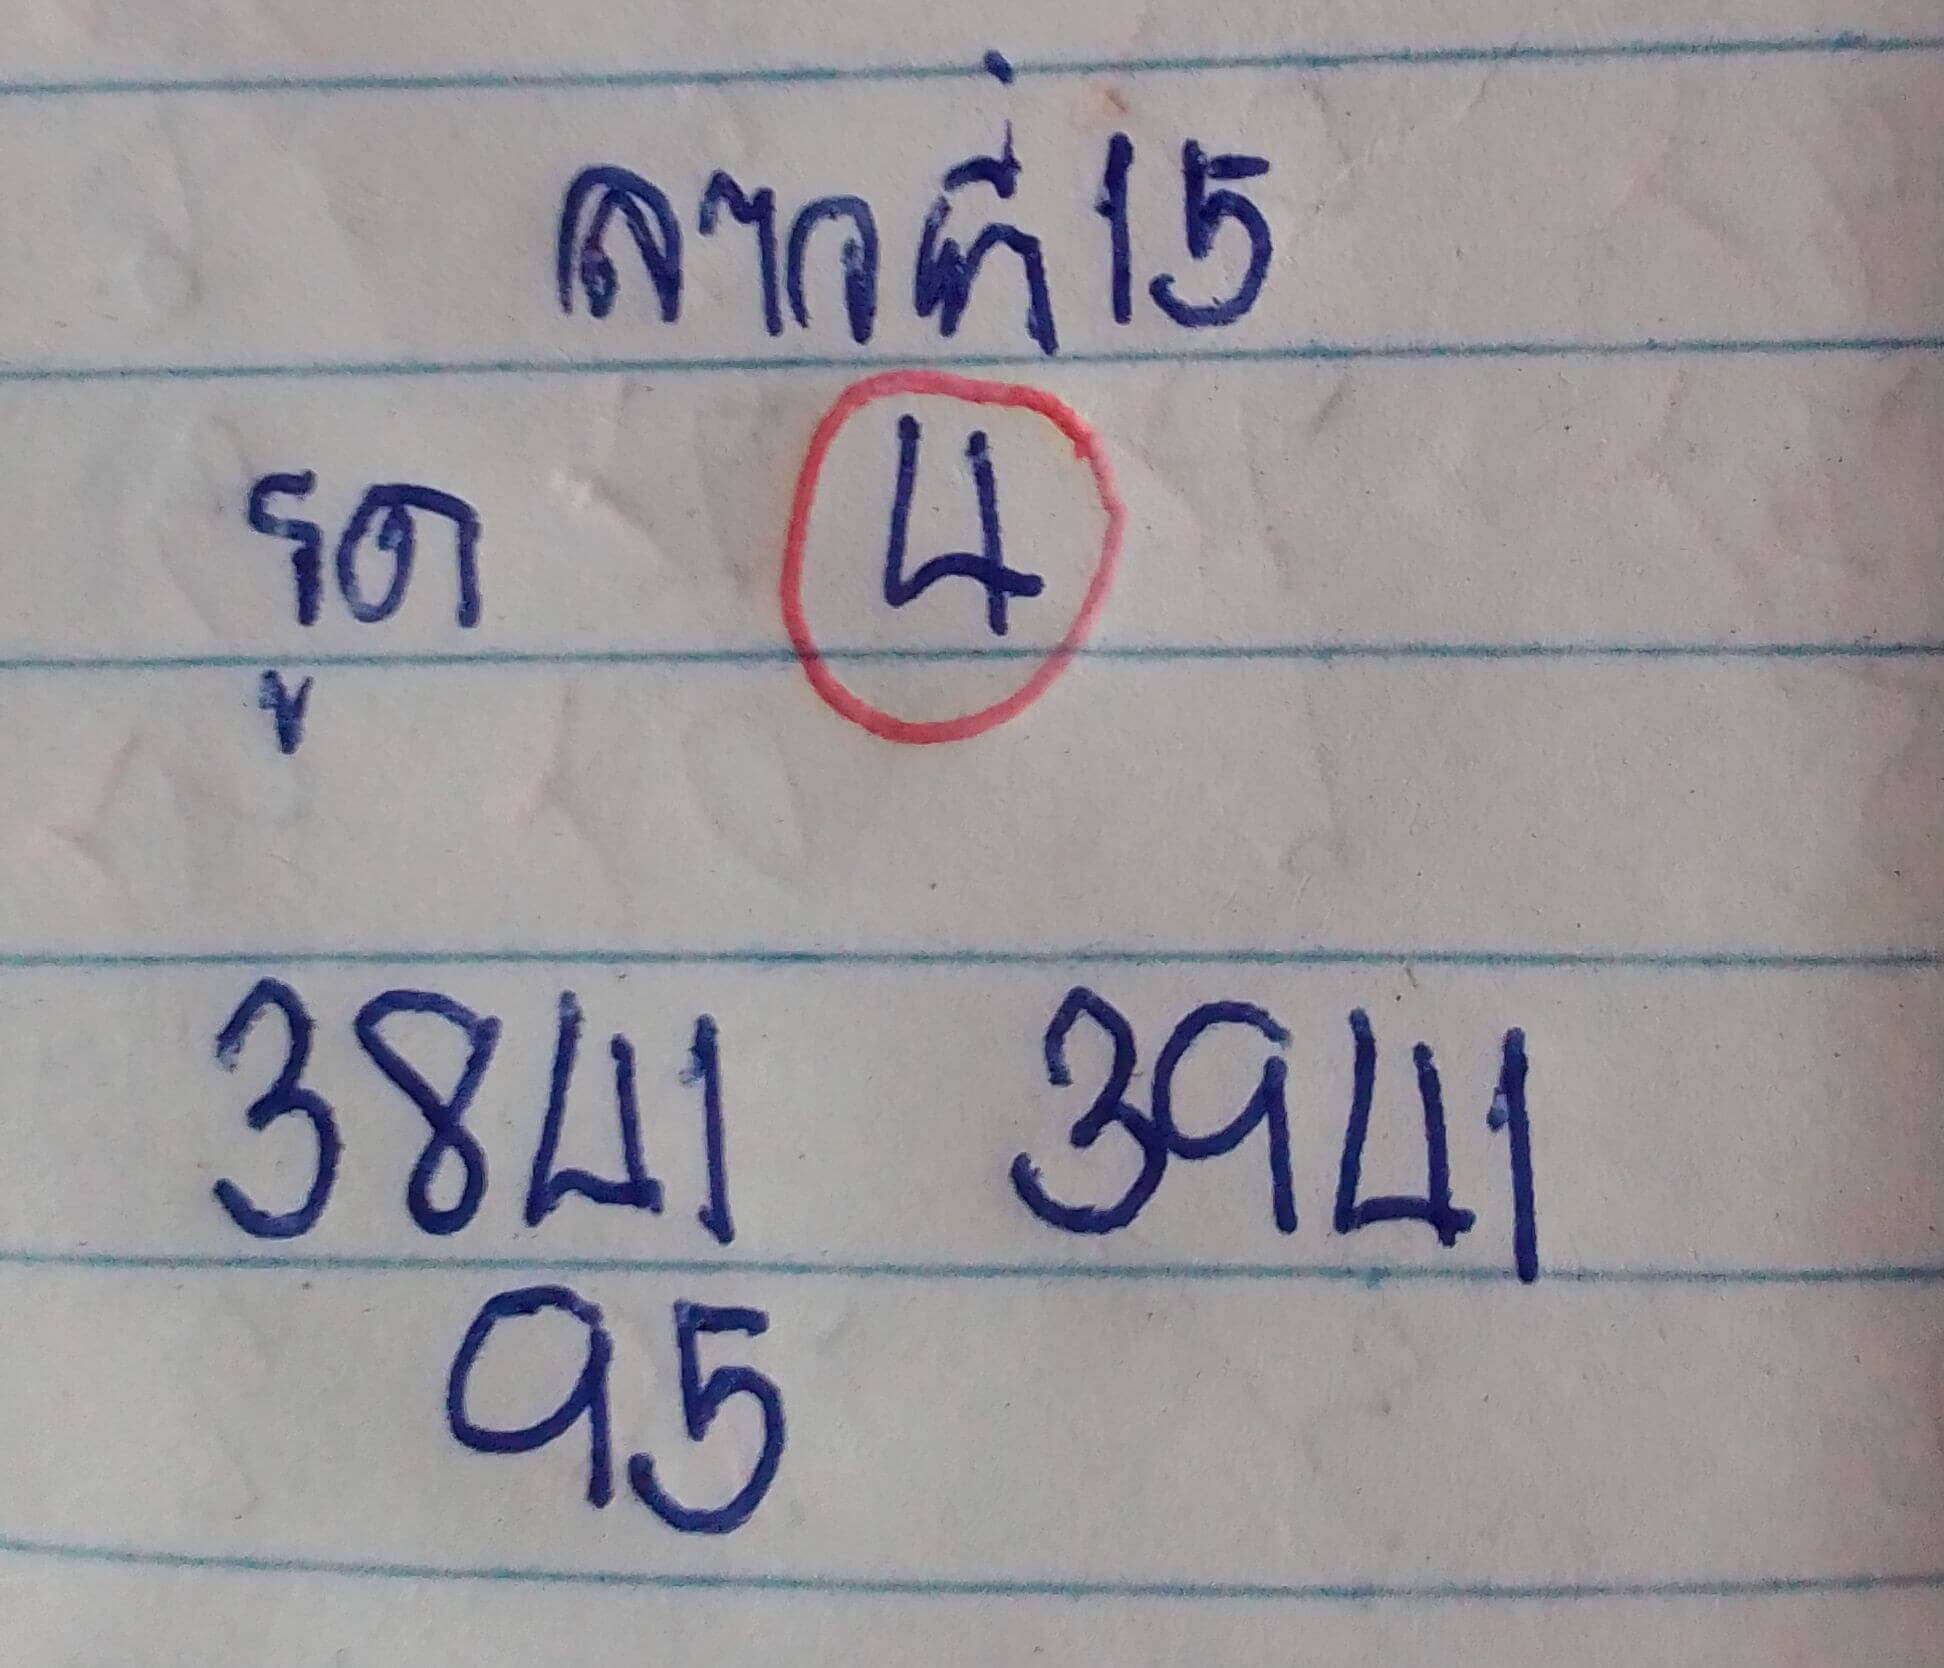 ลาวที่ 15
รูด 4
3841 3941
95